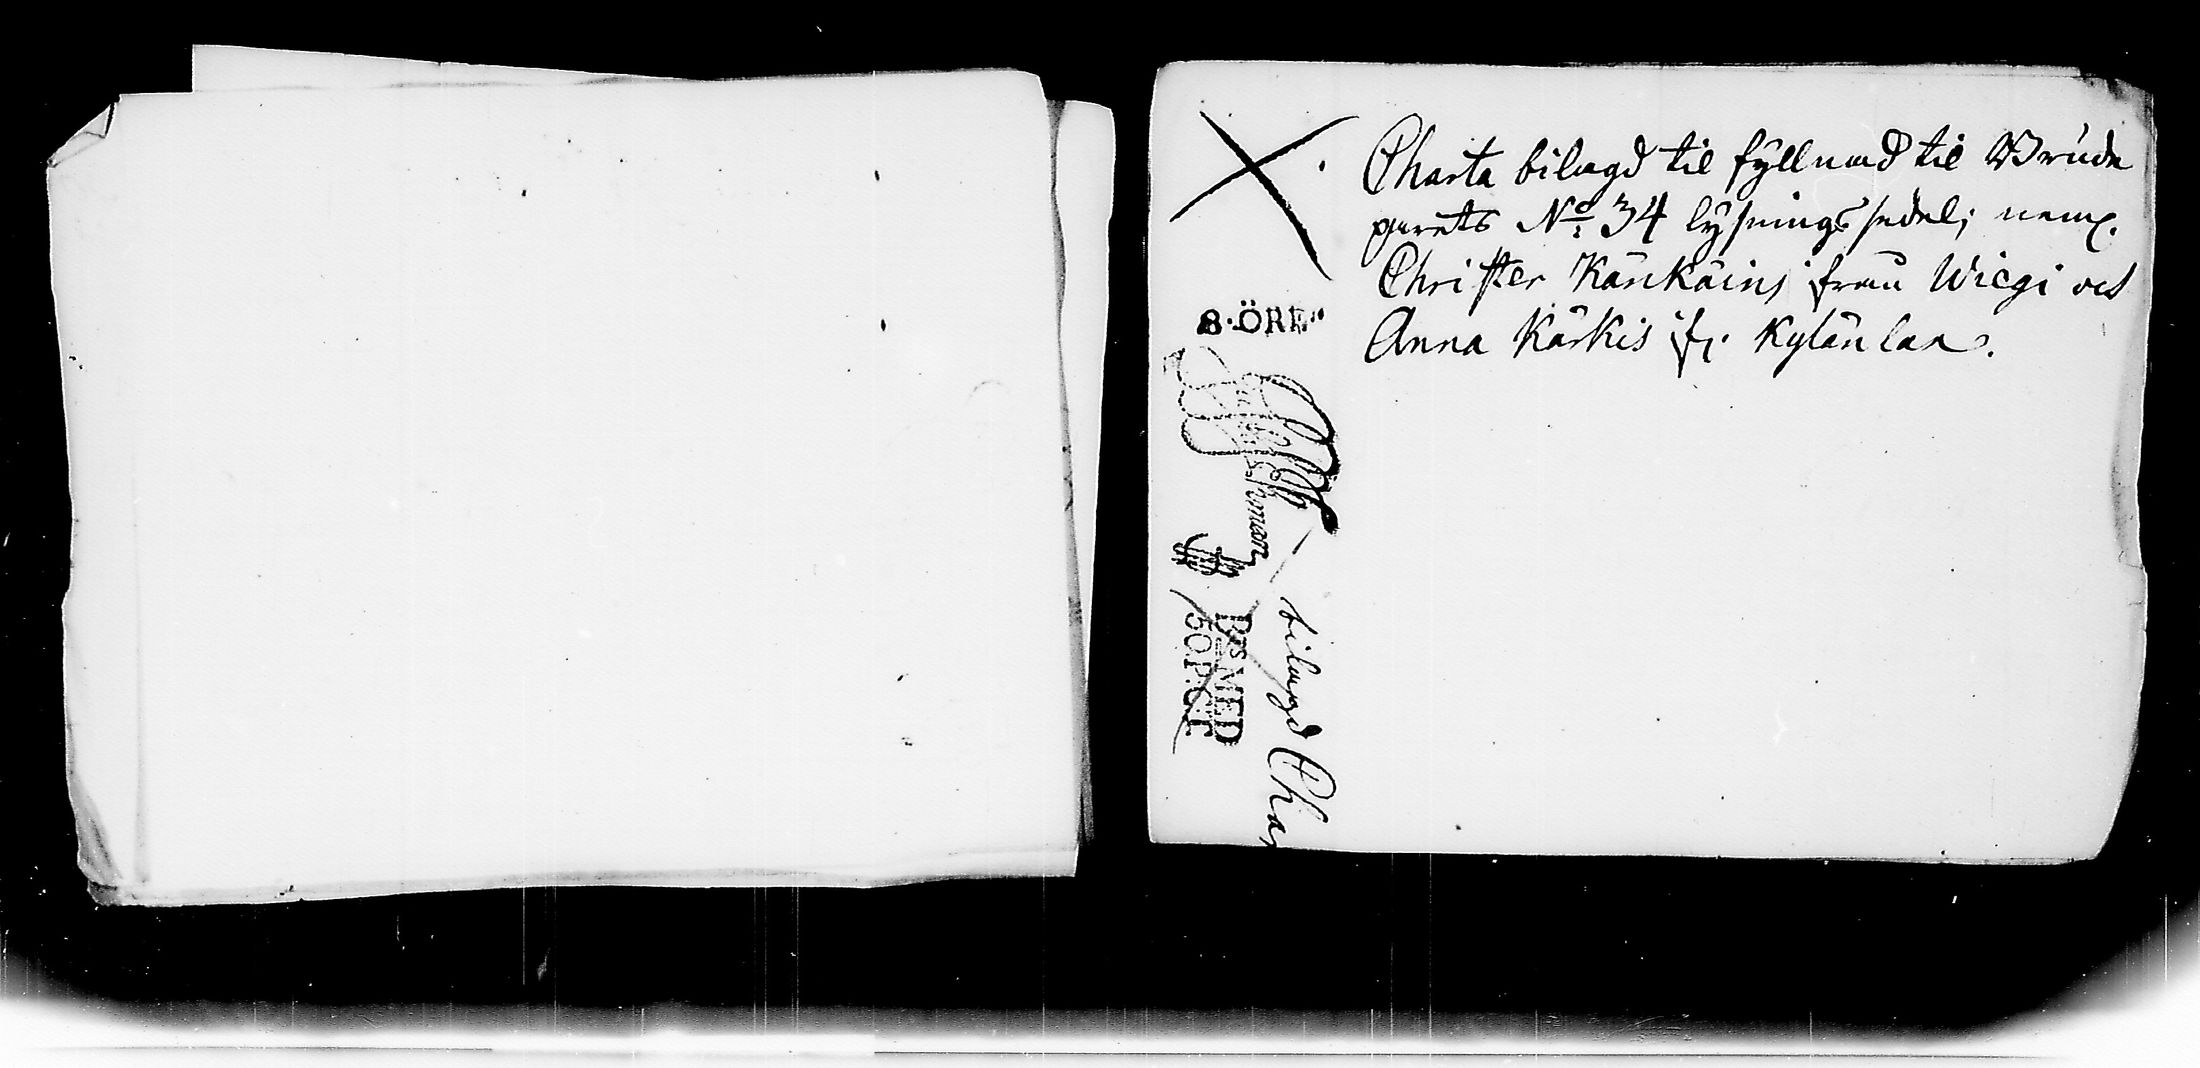 Charta bilagd til fyllnad til Brude
parets No: 34 lysnings sedel; neml.
Christer Känkäinj från Wiegi och
Anna Kärkis fr. Kylänlax.
8·ÖRE
BTS MED
50 P:CT
bilagd Char